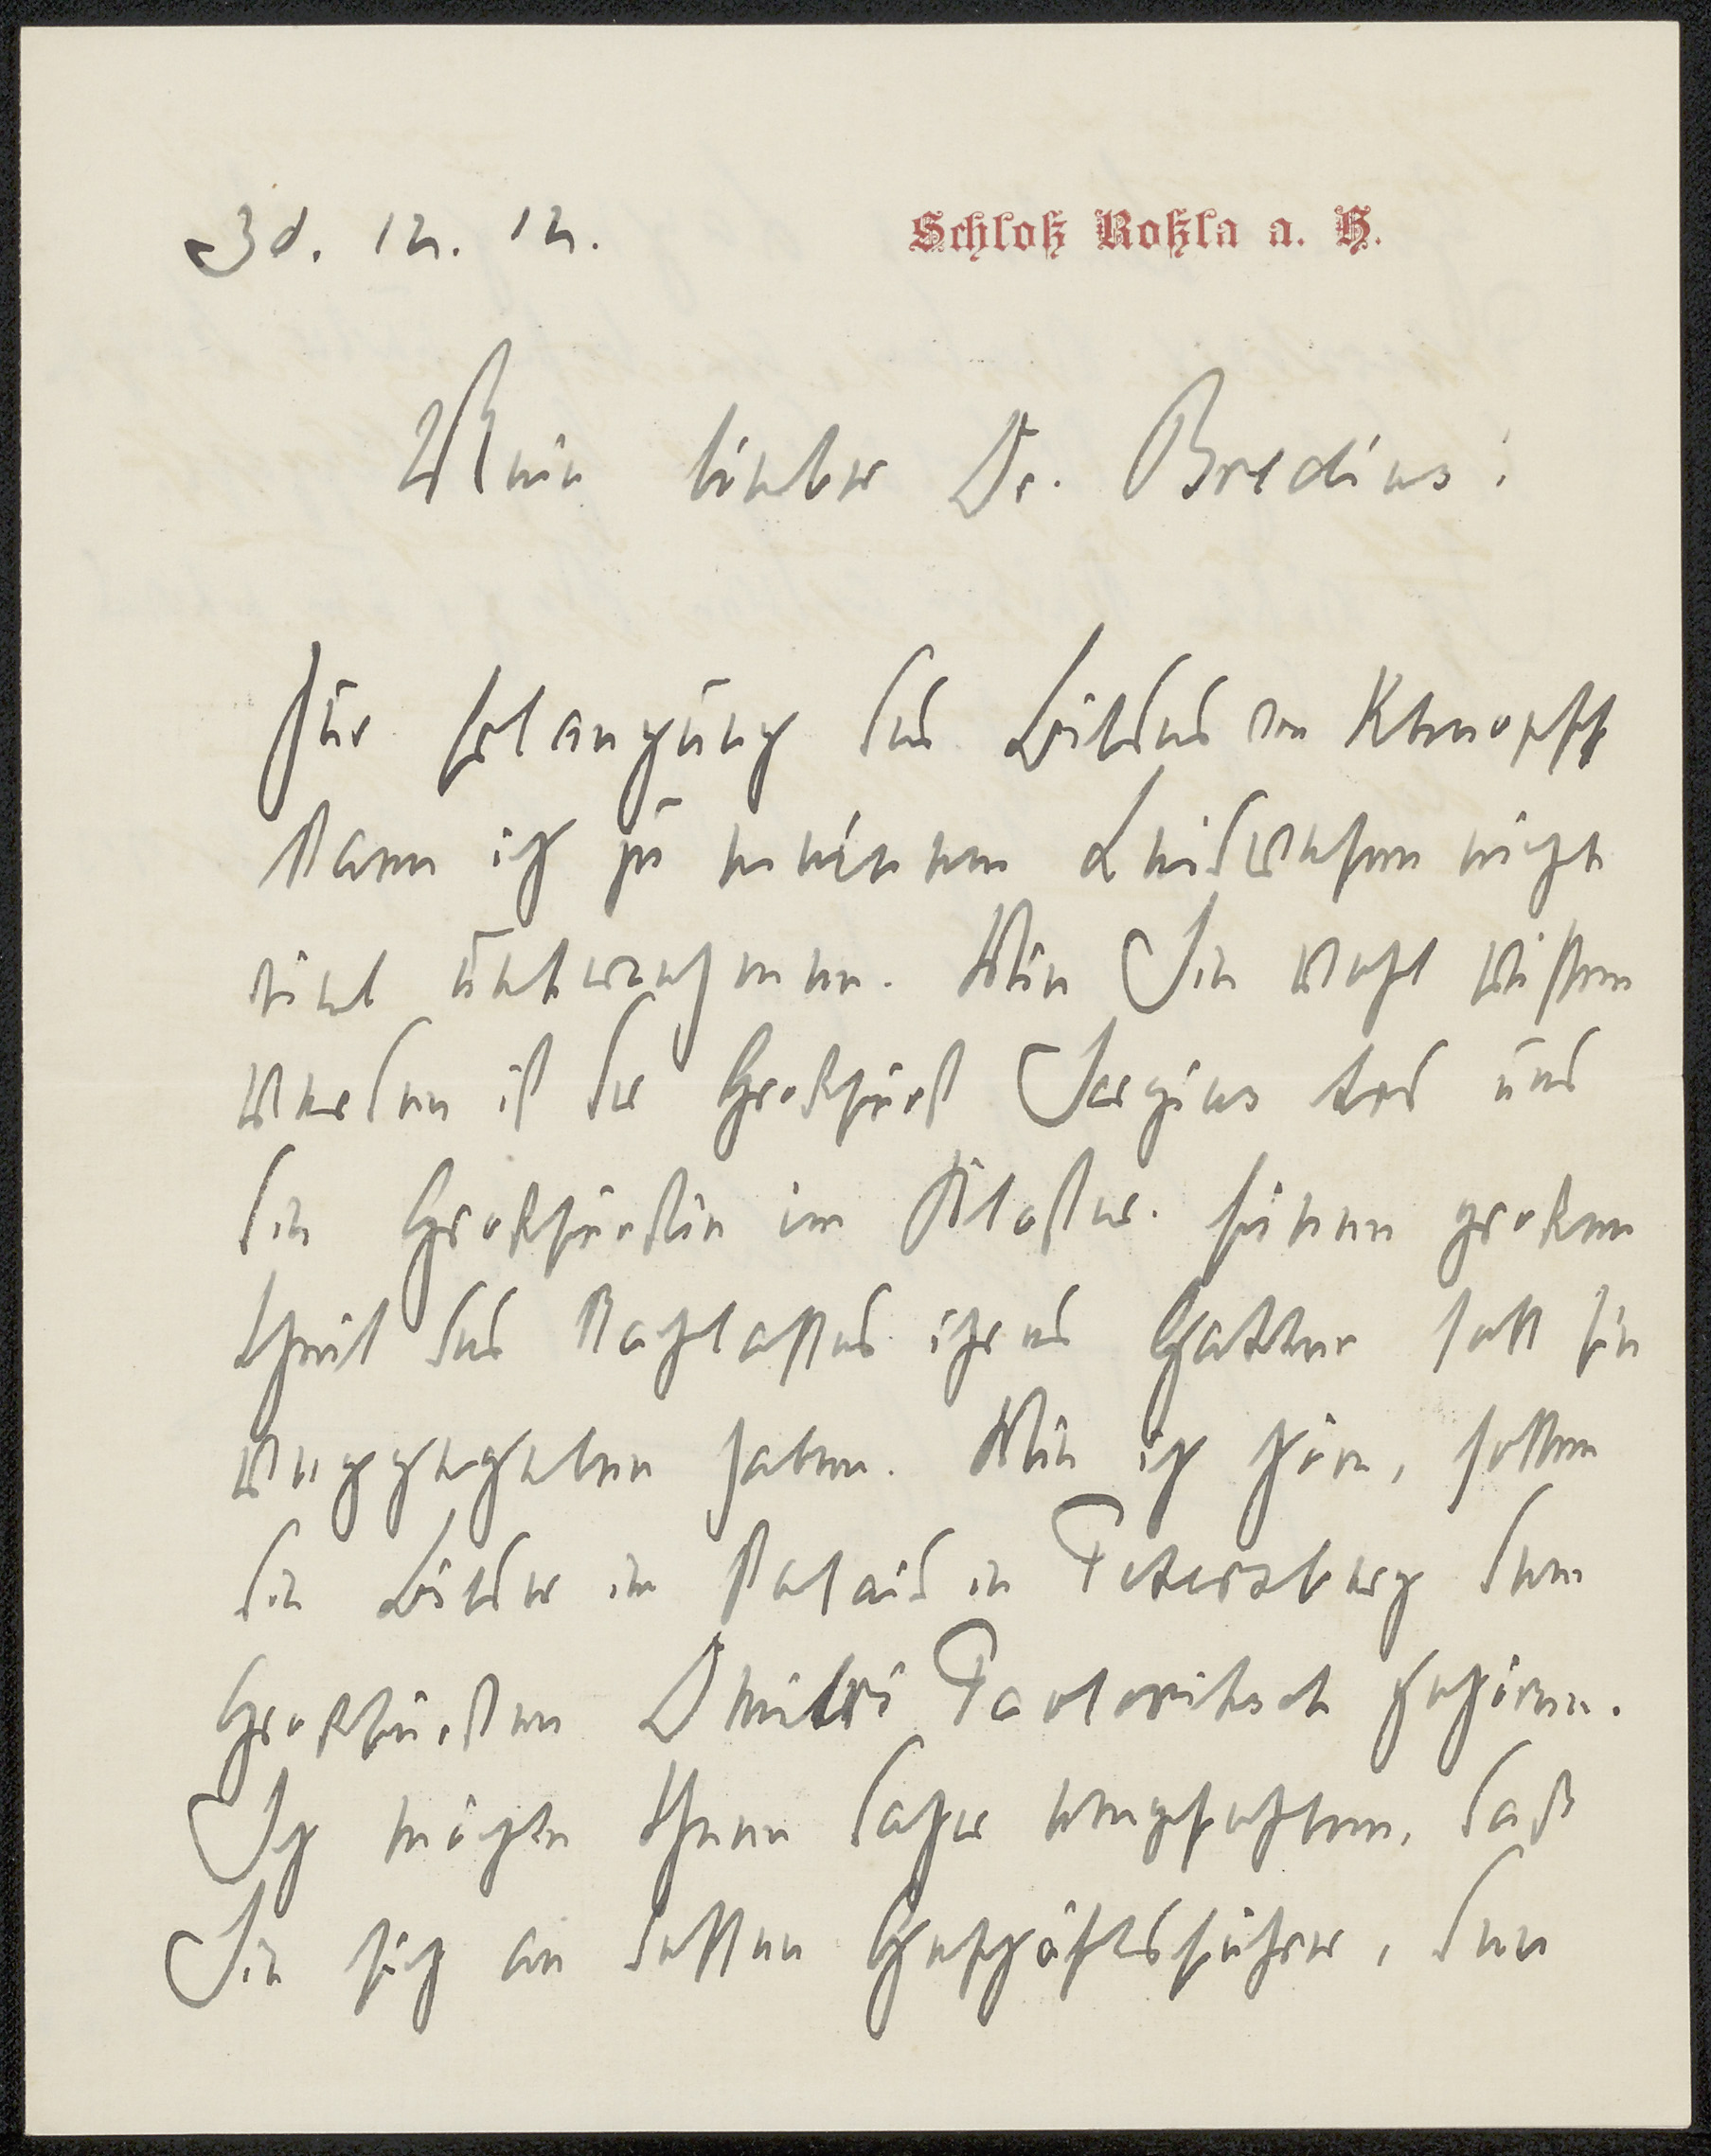 30. 12. 12.
Schloß Roßla a. H.
Mein lieber Dr. Bredius!
Für Erlangung des Bildes von Khnopff
kann ich zu meinem Leidwesen nicht
viel unternehmen. Wie Sie wohl wissen
werden ist der Großfürst Sergius tod und
die Großfürstin im Kloster. Einen großen
Theil des Nachlasses ihres Gatten soll sie
weggegeben haben. Wie ich höre, sollen
die Bilder im Palais in Petersburg dem
Großfürsten Dmitri Paulovitsch gehören.
Ich möchte Ihnen daher empfehlen, daß
Sie sich an dessen Geschäftsführer, den